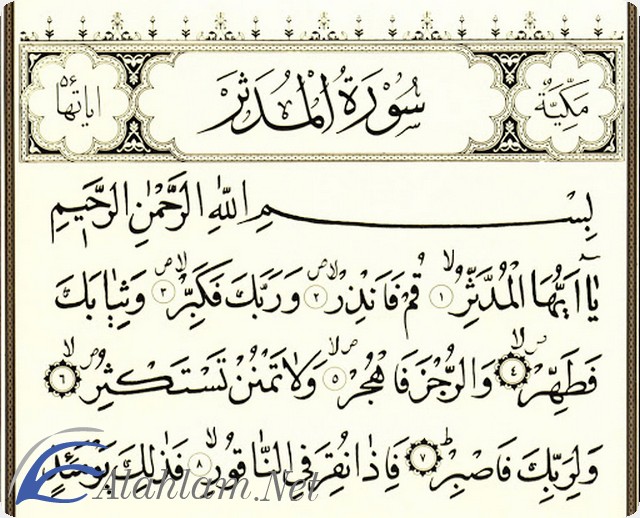 مكية
سورة المدثر
اياتها ٥٦
بِسْمِ اللّٰهِ الرَّحْمٰنِ الرَّحٖيمِ
يَٓا اَيُّهَا الْمُدَّثِّرُۙ ﴿١﴾ قُمْ فَاَنْذِرْۙۖ ﴿٢﴾ وَرَبَّكَ فَكَبِّرْۙۖ ﴿٣﴾ وَثِيَابَكَ
فَطَهِّرْۙۖ ﴿٤﴾ وَالرُّجْزَ فَاهْجُرْۙۖ ﴿٥﴾ وَلَا تَمْنُنْ تَسْتَكْثِرُۙۖ ﴿٦﴾
وَلِرَبِّكَ فَاصْبِرْؕ ﴿٧﴾ فَاِذَا نُقِرَ فِي النَّاقُورِۙ ﴿٨﴾ فَذٰلِكَ يَوْمَئِذٍ
Alahlam.Net